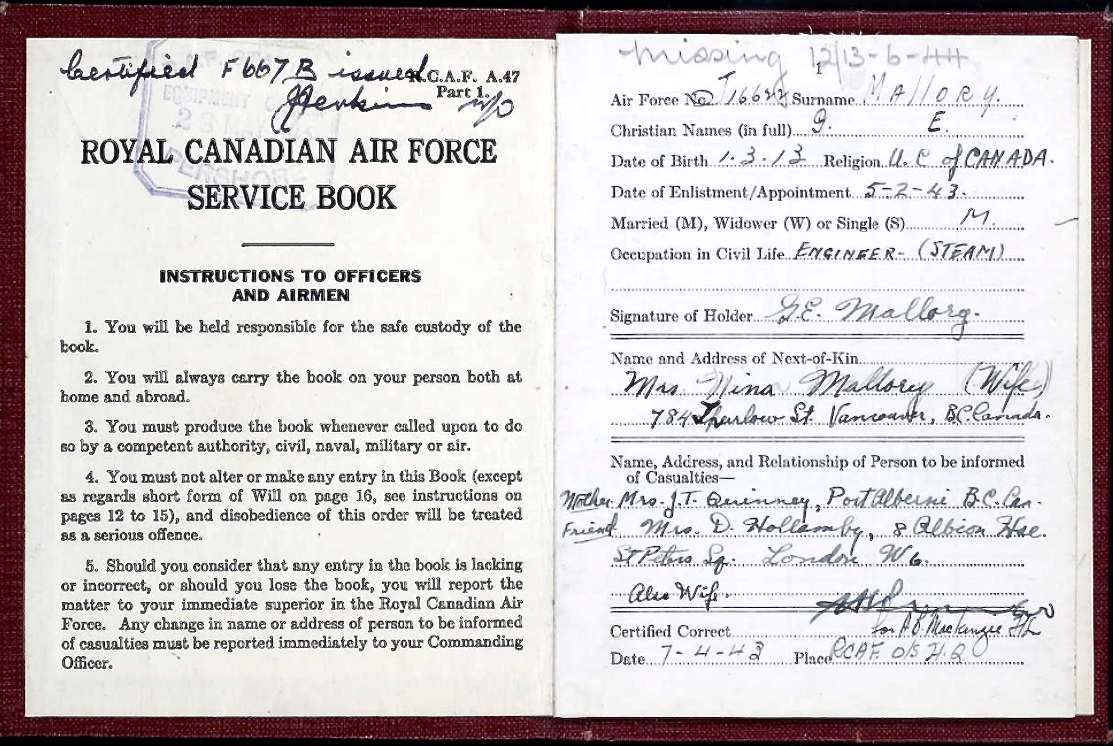 Certified F667B issued
R.C.A.F. A.47
Part 1.
ROYAL CANADIAN AIR FORCE
SERVICE BOOK
INSTRUCTIONS TO OFFICERS
AND AIRMEN
1. You will be held responsible for the safe custody of the
book.
2. You will always carry the book on your person both at
home and abroad.
3. You must produce the book whenever called upon to do
so by a competent authority, civil, naval, military or air.
4. You must not alter or make any entry in this Book (except
as regards short form of Will on page 16, see instructions on
pages 12 to 15), and disobedience of this order will be treated
as a serious offence.
5. Should you consider that any entry in the book is lacking
or incorrect, or should you lose the book, you will report the
matter to your immediate superior in the Royal Canadian Air
Force. Any change in name or address of person to be informed
of casualties must be reported immediately to your Commanding
Officer.
Missing 12/13-6-44
1
Air Force No. J16622 Surname MALLORY.
Christian Names (in full) G. E.
Date of Birth 1.3.13 Religion U.C of CANADA.
Date of Enlistment/Appointment 5-2-43.
Married (M), Widower (W) or Single (S) M.
Occupation in Civil Life ENGINEER- (STEAM)
Signature of Holder G.E. Mallory.
Name and Address of Next-of-Kin
Mrs. Nina Mallory (Wife)
784 Thurlow St. Vancouver, B.C. Canada.
Name, Address, and Relationship of Person to be informed
of Casualties—
Mother Mrs. J.T. Quinney, Port Alberni B.C. Can.
Friend Mrs. D. Hollamby, 8 Albion Hse.
St Peters Sq. London W6.
Also Wife.
for A.B. Mackenzie F/L
Certified Correct
Date 7-4-43 Place RCAF O/S H.Q